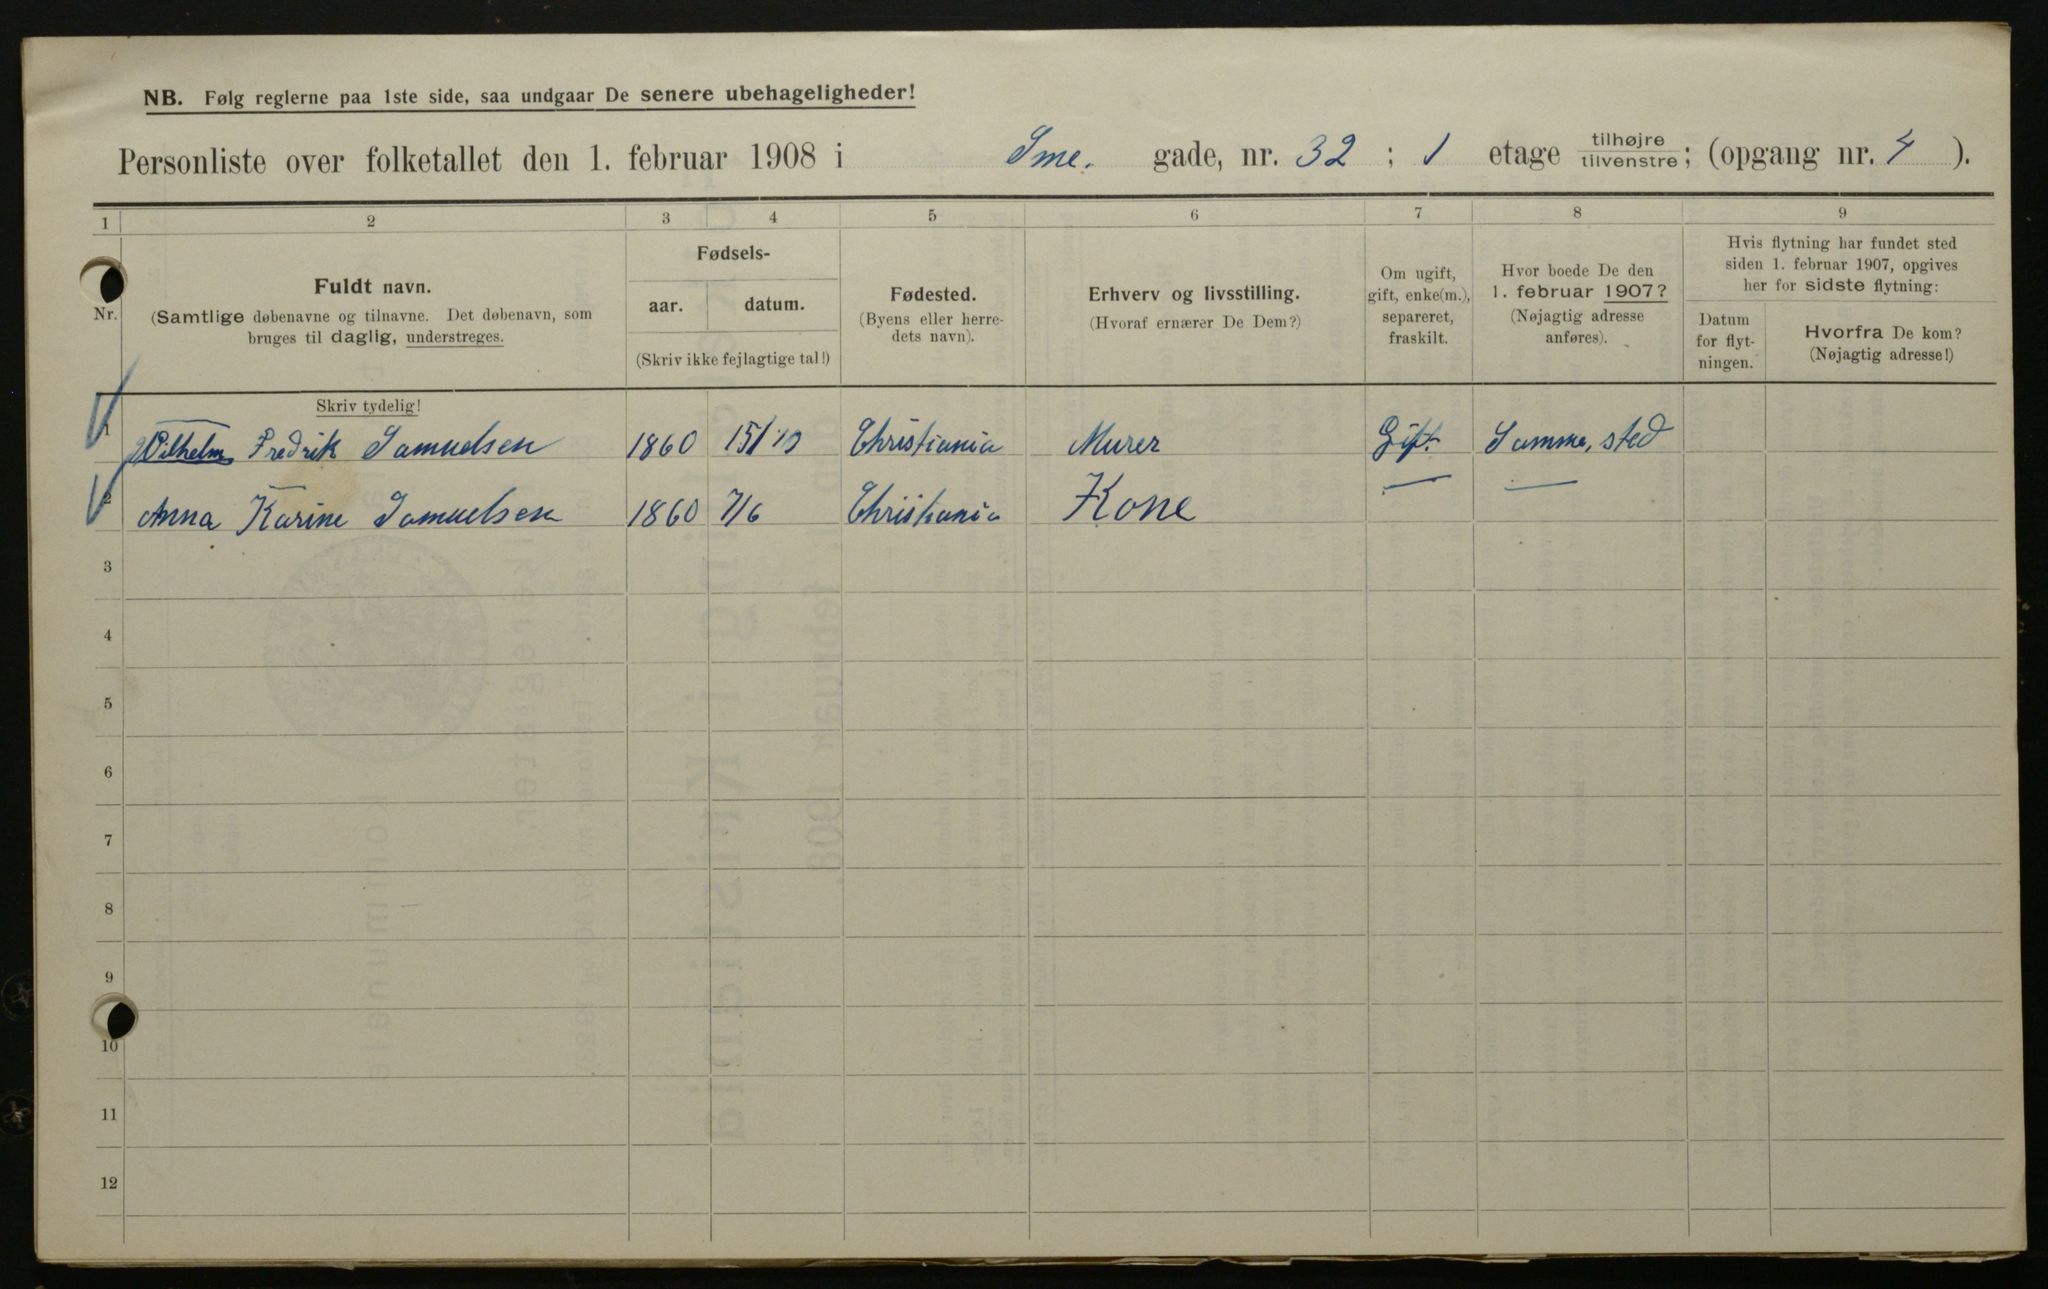 NB. Følg reglerne paa 1ste side, saa undgaar De senere ubehageligheder!
Personliste over folketallet den 1. februar 1908 i Sme. gade, nr. 32 ; 1 etage tilhøjre tilvenstre ; (opgang nr. 4 ).
1 2 3 4 5 6 7 8 9
Nr.
Fuldt navn.
(Samtlige døbenavne og tilnavne. Det døbenavn, som
bruges til daglig, understreges.
Fødsels-
aar. datum.
(Skriv ikke fejlagtige tal!)
Fødested.
(Byens eller herre-
dets navn).
Erhverv og livsstilling.
(Hvoraf ernærer De Dem?)
Om ugift,
gift, enke(m.),
separeret,
fraskilt.
Hvor boede De den
1. februar 1907?
(Nøjagtig adresse
anføres).
Hvis flytning har fundet sted
siden 1. februar 1907, opgives
her for sidste flytning:
Datum
for flyt-
ningen.
Hvorfra De kom?
(Nøjagtig adresse!)
Skriv tydelig!
1 Wilhelm Fredrik Samuelsen 1860 15/10 Christiania Murer Gift. Samme, sted
2 Anna Karine Samuelsen 1860 7/6 Christiania Kone — —
3
4
5
6
7
8
9
10
11
12